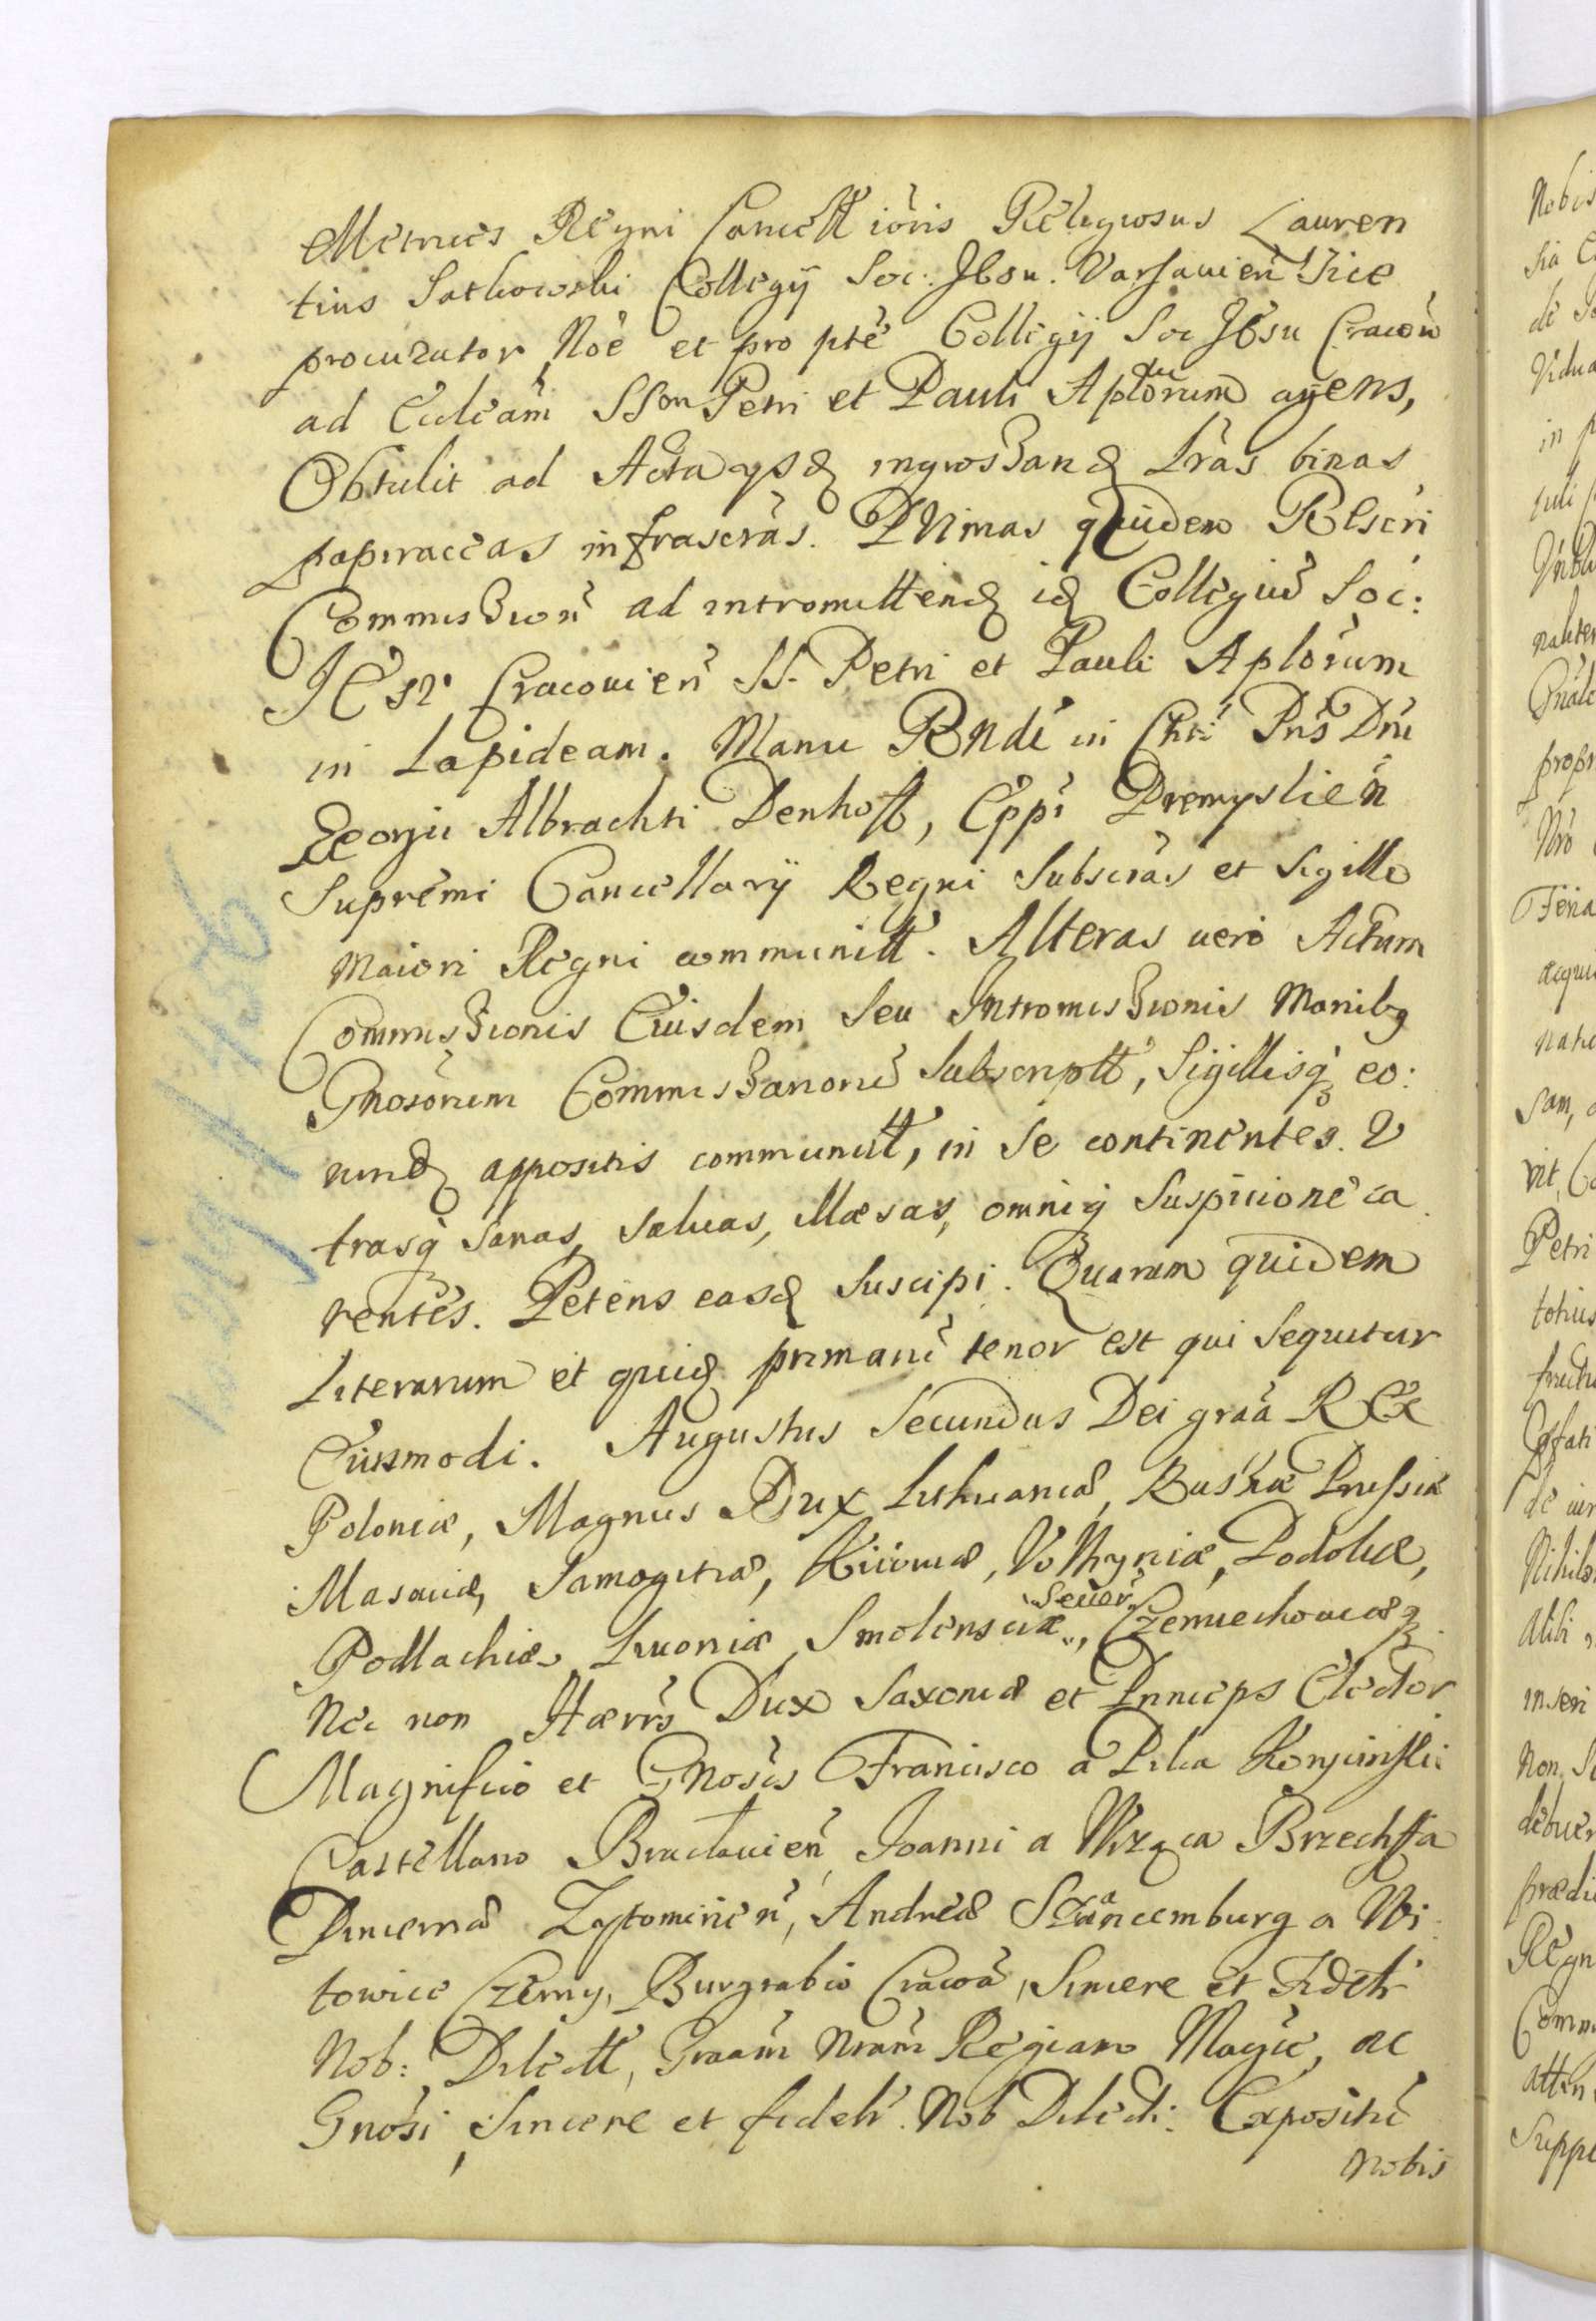 Metrices Regni Cancellt ioris Religiosus Lauren
tius Sathowski Collegÿ Soc: Jesu. Varsavien Vice
procurator Noe et pro pte Collegÿ Soc Jesu Cracoū
ad Eccleam SSor Petri et Pauli Aplorum agens,
Obtulit ad Acta ingrossand Lras binas
papiraceas infrascras. Primas quidem Rescri
Commission ad intromittend id Collegiū Soc:
JESU Cracovien SS. Petri et Pauli Aplorum
in Lapideam. Manu Rndi in Chri Pris Dni
Georgii Albrachti Denhoff, Eppi Premyslien
Supremi Cancellarÿ Regni Subscras et Sigillo
Maiori Regni communitt. Alteras vero Actum
Commissionis Eiusdem Seu Intromissionis Manibq
Gnosorum Commissarionū Subscriptt, Sigillisq eo:
rund appositis communitt, in se continentes. V
trasq sanas, salvas, illaesas, omniq Suspicione ca
rentes. Petens easd Suscipi. Quarum quidem
Literarum et quid primarū tenor est qui Sequitur
Eiusmodi. Augustus Secundus Dei graā REX
Poloniæ, Magnus Dux Lithuaniæ, Russiæ Prussiæ
Masoviæ, Samogitiæ, Kijoviæ, Volhyniæ, Podoliæ,
Podlachiæ, Livoniæ, Smolensciæ, Sever, Czerniechoviæq
Nec non Hærrs Dux Saxoniæ et Princeps Elector
Magnifico et Gnosis Francisco a Pilca Koryciński
Castellano Braclavien, Joanni a Wrząca Brzechffa
Pincernæ Zytomirien, Andreæ Szwancemburg a Wi
towice Czerny, Burgrabio Cracoū, Sincere et Fideli
Nob: Dilectt, Graam Nram Regiam Magce, ac
Gnosi, Sincere et fideli Nob Dilecti: Expositū
Nobis